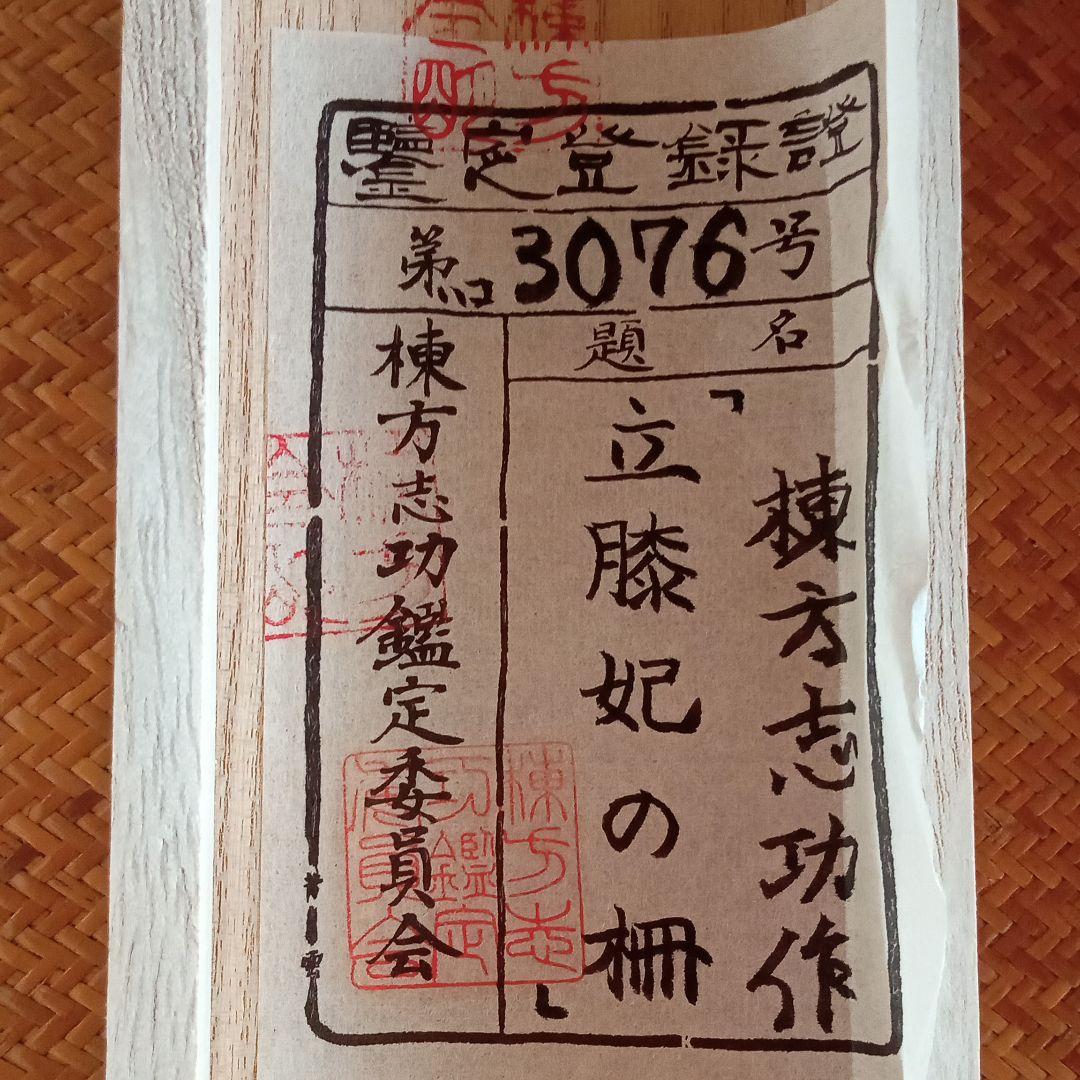 鑒定登録證
第ハロ3076号
題名
棟方志功作
「立膝妃の柵」
棟方志功鑑定委員会
棟方志
功鑑定
委員会